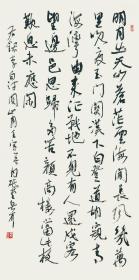 明月出天山蒼茫雲海間長風幾萬
里吹度玉門關漢下白登道胡窺青
海灣由來征戰地不見有人還戍客
望邊邑思歸多苦顏高樓當此夜
歎息未應閑
李白詩關山月